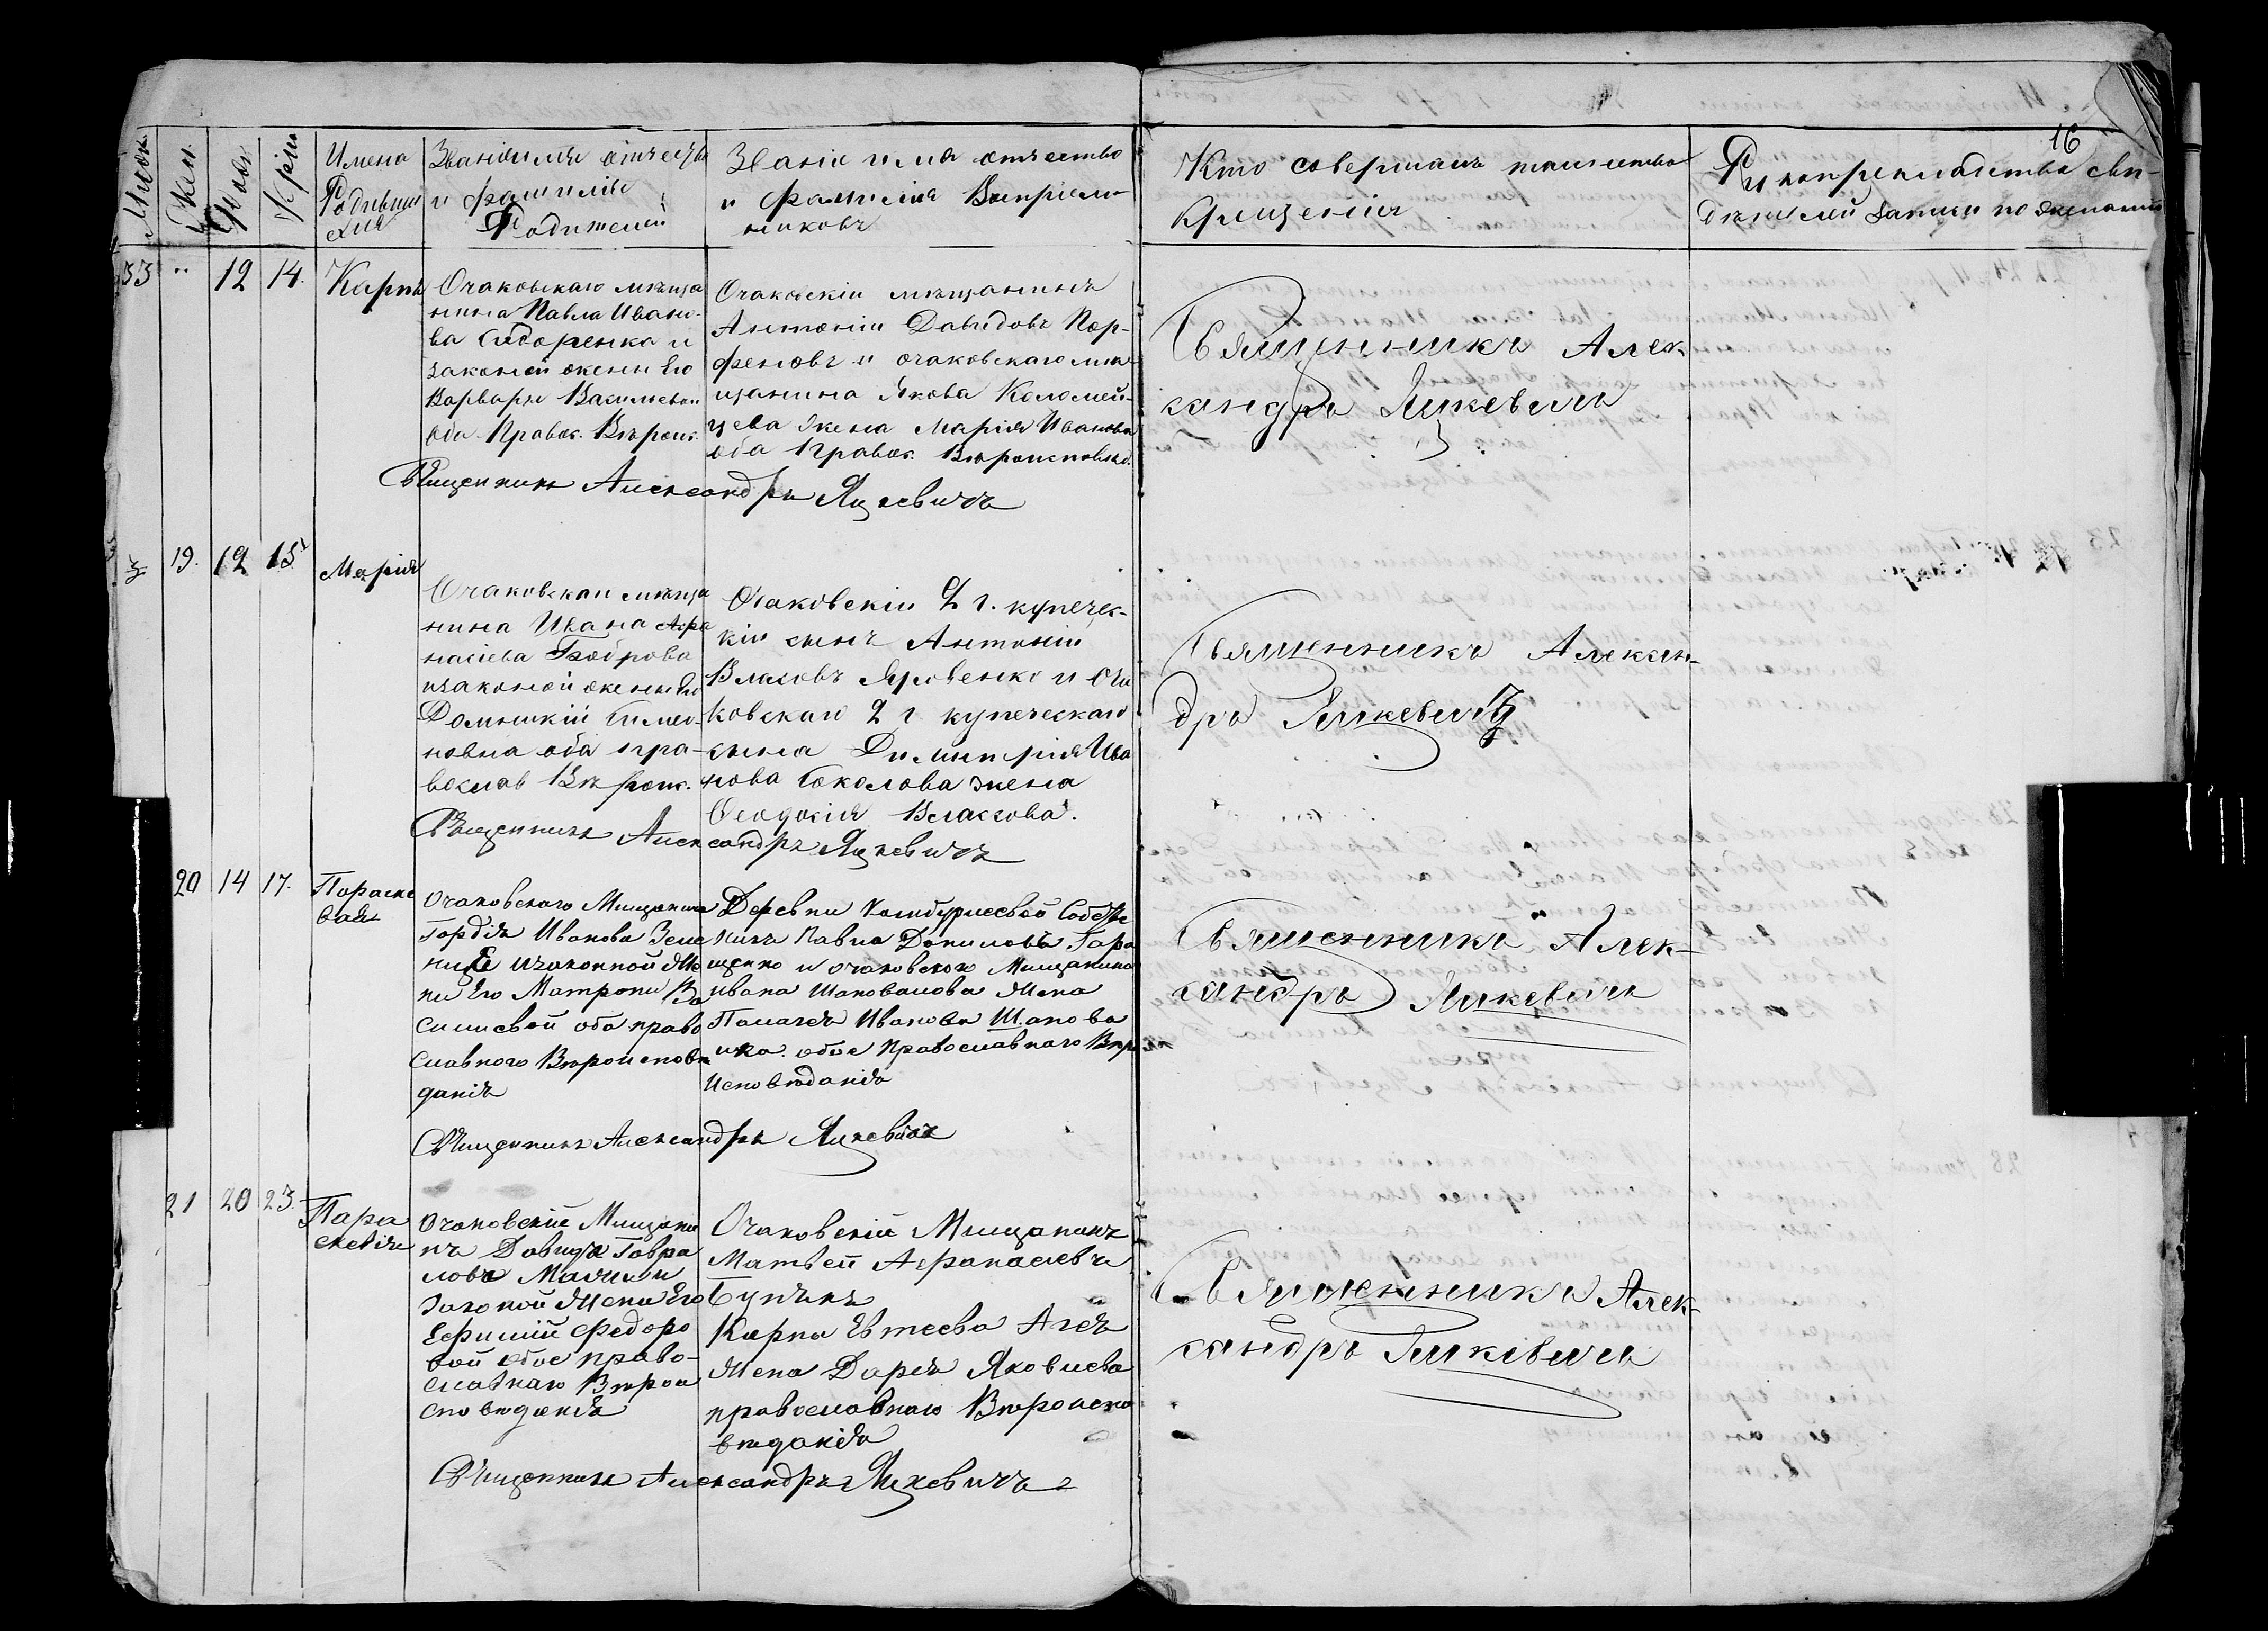 16
Муж.
Жен.
Рож.
Крещ.
Имена
Родивши
хся
Званіе имя отчество
и фамилія
Родителей
Званіе имя отчество
и фамилія Воспріем-
никовъ
Кто совершалъ таинство
крещенія
Рукоприкладство сви-
дѣтелей записи по желанію
33 " 12 14. Карпъ
Очаковскаго мѣща
нина Павла Ивано-
ва Сидоренка и
законой жены его
Варвары Василевой
оба Правос. Вѣроис.
Очаковскій мѣщанинъ
Антоній Давидовъ Пар-
феновъ и очаковскаго мѣ
щанина Якова Коломей-
цева жена Марія Иванова
оба Правос. Вѣроисповѣд.
Священникъ Алек-
сандръ Яцкевичъ
Священникъ Александръ Яцкевичъ
19. 12 15. Марія
Очаковскаи мѣща
нина Ивана Афа
насіева Боброва
изаконой жены его
Домникіи Симео-
новна оба пра-
вослав Вѣроис.
Очаковскій 2 г. купечес-
кій сынъ Антоній
Власовъ Яровенко и Оча
ковскаго 2 г купеческаго
сына Димитрія Ива
нова Соколова жена
Феодосія Власова.
Священникъ Алексан-
дръ Яцкевичъ
Священникъ Александръ Яцкевичъ
20 14 17. Параске
вая
Очаковского Мищанина
Гордія Иванова Зеле
ницЕ изаконной Же
ни Его Матрони Ва
силиевой оба право
славного Вѣроисповѣ
данія
Деревни Собстве
никъ Павла Даниловъ Гара
щенко и очаковского Мищанина
ивана Шаповалова Жена
Палагея Иванова Шапова
лка. обое Православнаго Вѣро
Исповѣданія
Священникъ Алек-
сандръ Яцкевичъ
Священникъ Александръ Яцкевичъ
21 20 23. Пара
скевія
Очаковскій Мищани
нъ Давидъ Гавра
ловъ и
Законой Жена Его
Ефиміи Федоро
вой обое право-
славнаго Вѣрои
сповѣданія
Очаковскій Мищанинъ
Матвей Афанасиевъ
Карпа Евтеева
Жена Дарія Яковлева
православнаго Вѣроиспо
вѣданія
Священникъ Алек-
сандръ Яцкевичъ
Священникъ Александръ Яцкевичъ